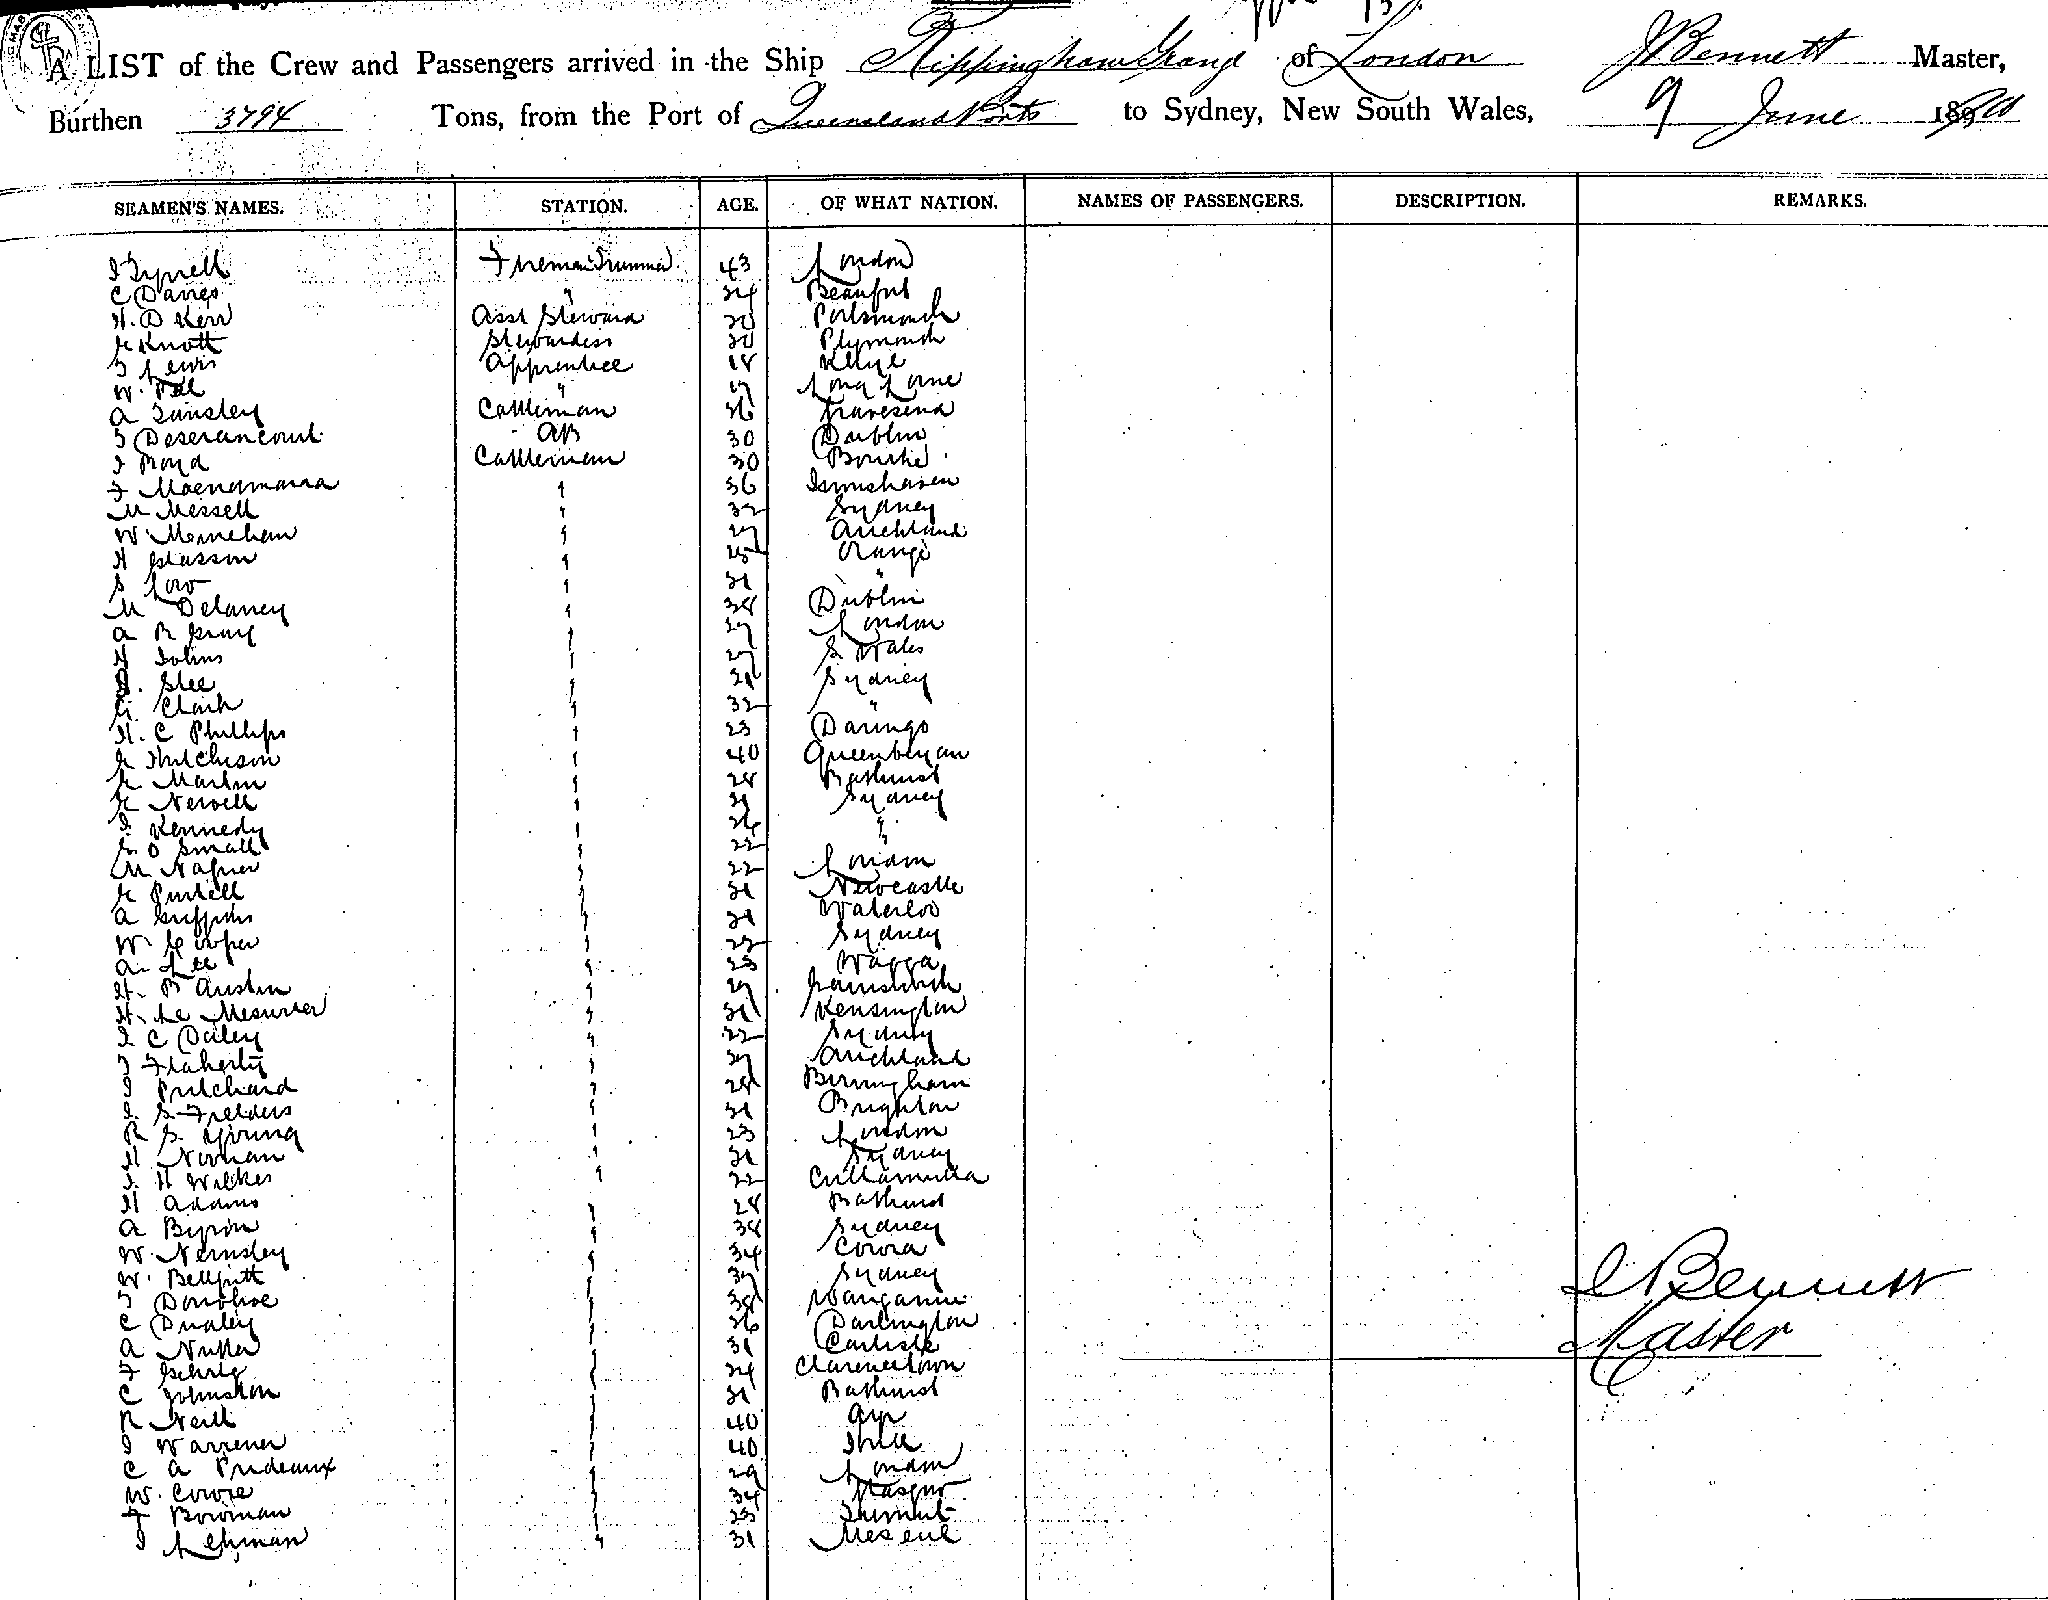 A LIST of the Crew and Passengers arrived in the Ship Rippingham Grange of London J Bennett Master,
Burthen 3794 Tons, from the Port of Queensland Ports to Sydney, New South Wales, 9 June 189
SEAMEN'S NAMES. STATION. AGE. OF WHAT NATION. NAMES OF PASSENGERS. DESCRIPTION. REMARKS.
J Tyrrell Fireman Trimmer 43 London
C Davies " 24 Beaufort
H. D Kerr Asst Steward 20 Portsmouth
Knott Stewardess 30 Plymouth
T Lewis Apprentice 18
W. " 17
A Cattleman 36 Gravesend
T Deserancourt AB 30 Dublin
J Boyd Cattleman 30 Bourke
F Macnamara " 36
M Messell " 32 Sydney
W " 27 Auckland
H Glasson " 25 Orange
S Low " 21 "
M Delaney " 38 Dublin
A R Gray " 27 London
H Johns " 27 S. Wales
Slee " 21 Sydney
G. Clark " 32 "
H. C Phillips " 23 Daringo
G Hutchison " 40 Queenbeyan
G Martin " 28 Bathurst
G Newell " 21 Sydney
J. Kennedy " 26 "
G. O Small " 22 "
M Napier " 22 London
G Purtell " 21 Newcastle
A Griffiths " 21 Waterloo
W. Cowper " 22 Sydney
A. Lee " 23 Wagga
H. B Austin " 27
H. Le Mesurier " 21 Kensington
J C Daley " 22 Sydney
T Flaherty " 27 Auckland
J Pritchard " 28 Birmingham
J. S Fielders " 21 Brighton
R S. Young " 23 London
H Norman " 21 Sydney
J. H Wilkes " 22
H Adams " 28 Bathurst
A Byron " 38 Sydney
W. " 34 Cowra
W. " 37 Sydney
T Donohoe " 38
C " 26 Darlington
A " 31 Carlisle
F Gehrig " 24 Clarencetown
C Johnston " 21 Bathurst
R Neill " 40 Ayr
J Warrener " 40 Hull
C A Prideaux " 29 London
W. Cowie " 34 Glasgow
F Bowman " 23 Tumut
J Lehman " 31
J Bennett
Master